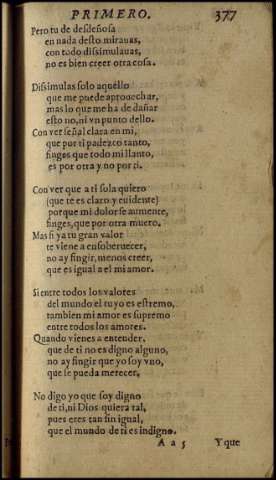 PRIMERO. 377
Pero tu de desdeñosa
en nada desto mirauas,
con todo dissimulauas,
no es bien creer otra cosa.
Dissimulas solo aquello
que me puede aprouechar,
mas lo que me ha de dañar
esto no, ni vn punto dello.
Con ver señal clara en mi,
que por ti padezco tanto,
finges que todo mi llanto,
es por otra y no por ti.
Con ver que a ti sola quiero
(que te es claro y euidente)
porque mi dolor se aumente,
finges, que por otra muero.
Mas si ya tu gran valor
te viene a ensoberuecer,
no ay fingir, menos creer,
que es igual a el mi amor.
Si entre todos los valores
del mundo el tuyo es estremo,
tambien mi amor es supremo
entre todos los amores.
Quando vienes a entender,
que de ti no es digno alguno,
no ay fingir que yo soy vno,
que se pueda merecer.
No digo yo que soy digno
de ti, ni Dios quiera tal,
pues eres tan sin igual,
que el mundo de ti es indigno.
A a 5 Y que